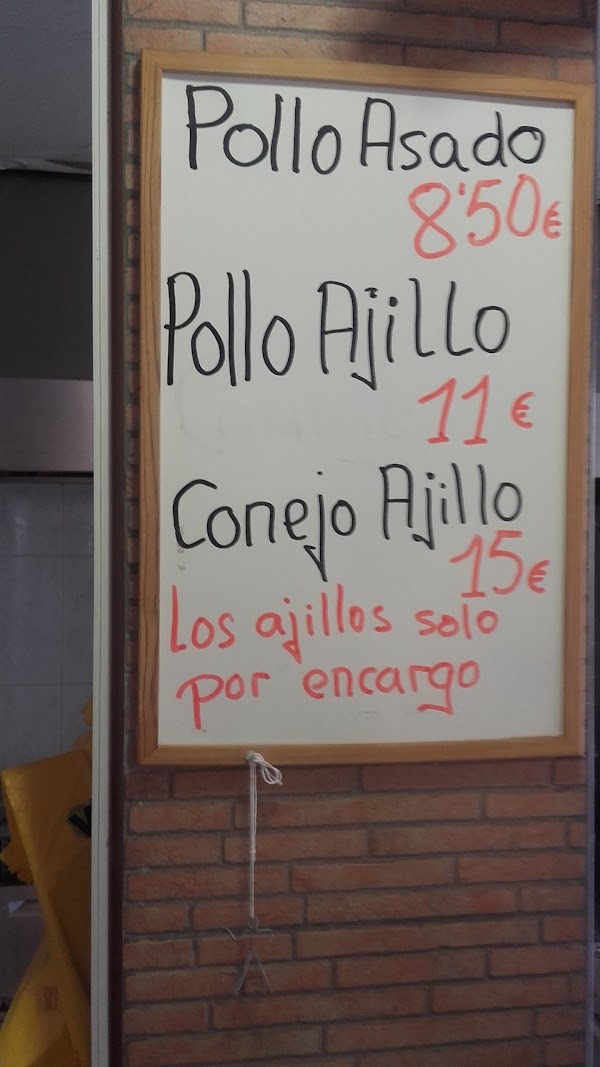 Pollo Asado
8'50€
Pollo Ajillo
11€
Conejo Ajillo
15€
Los ajillos solo
por encargo